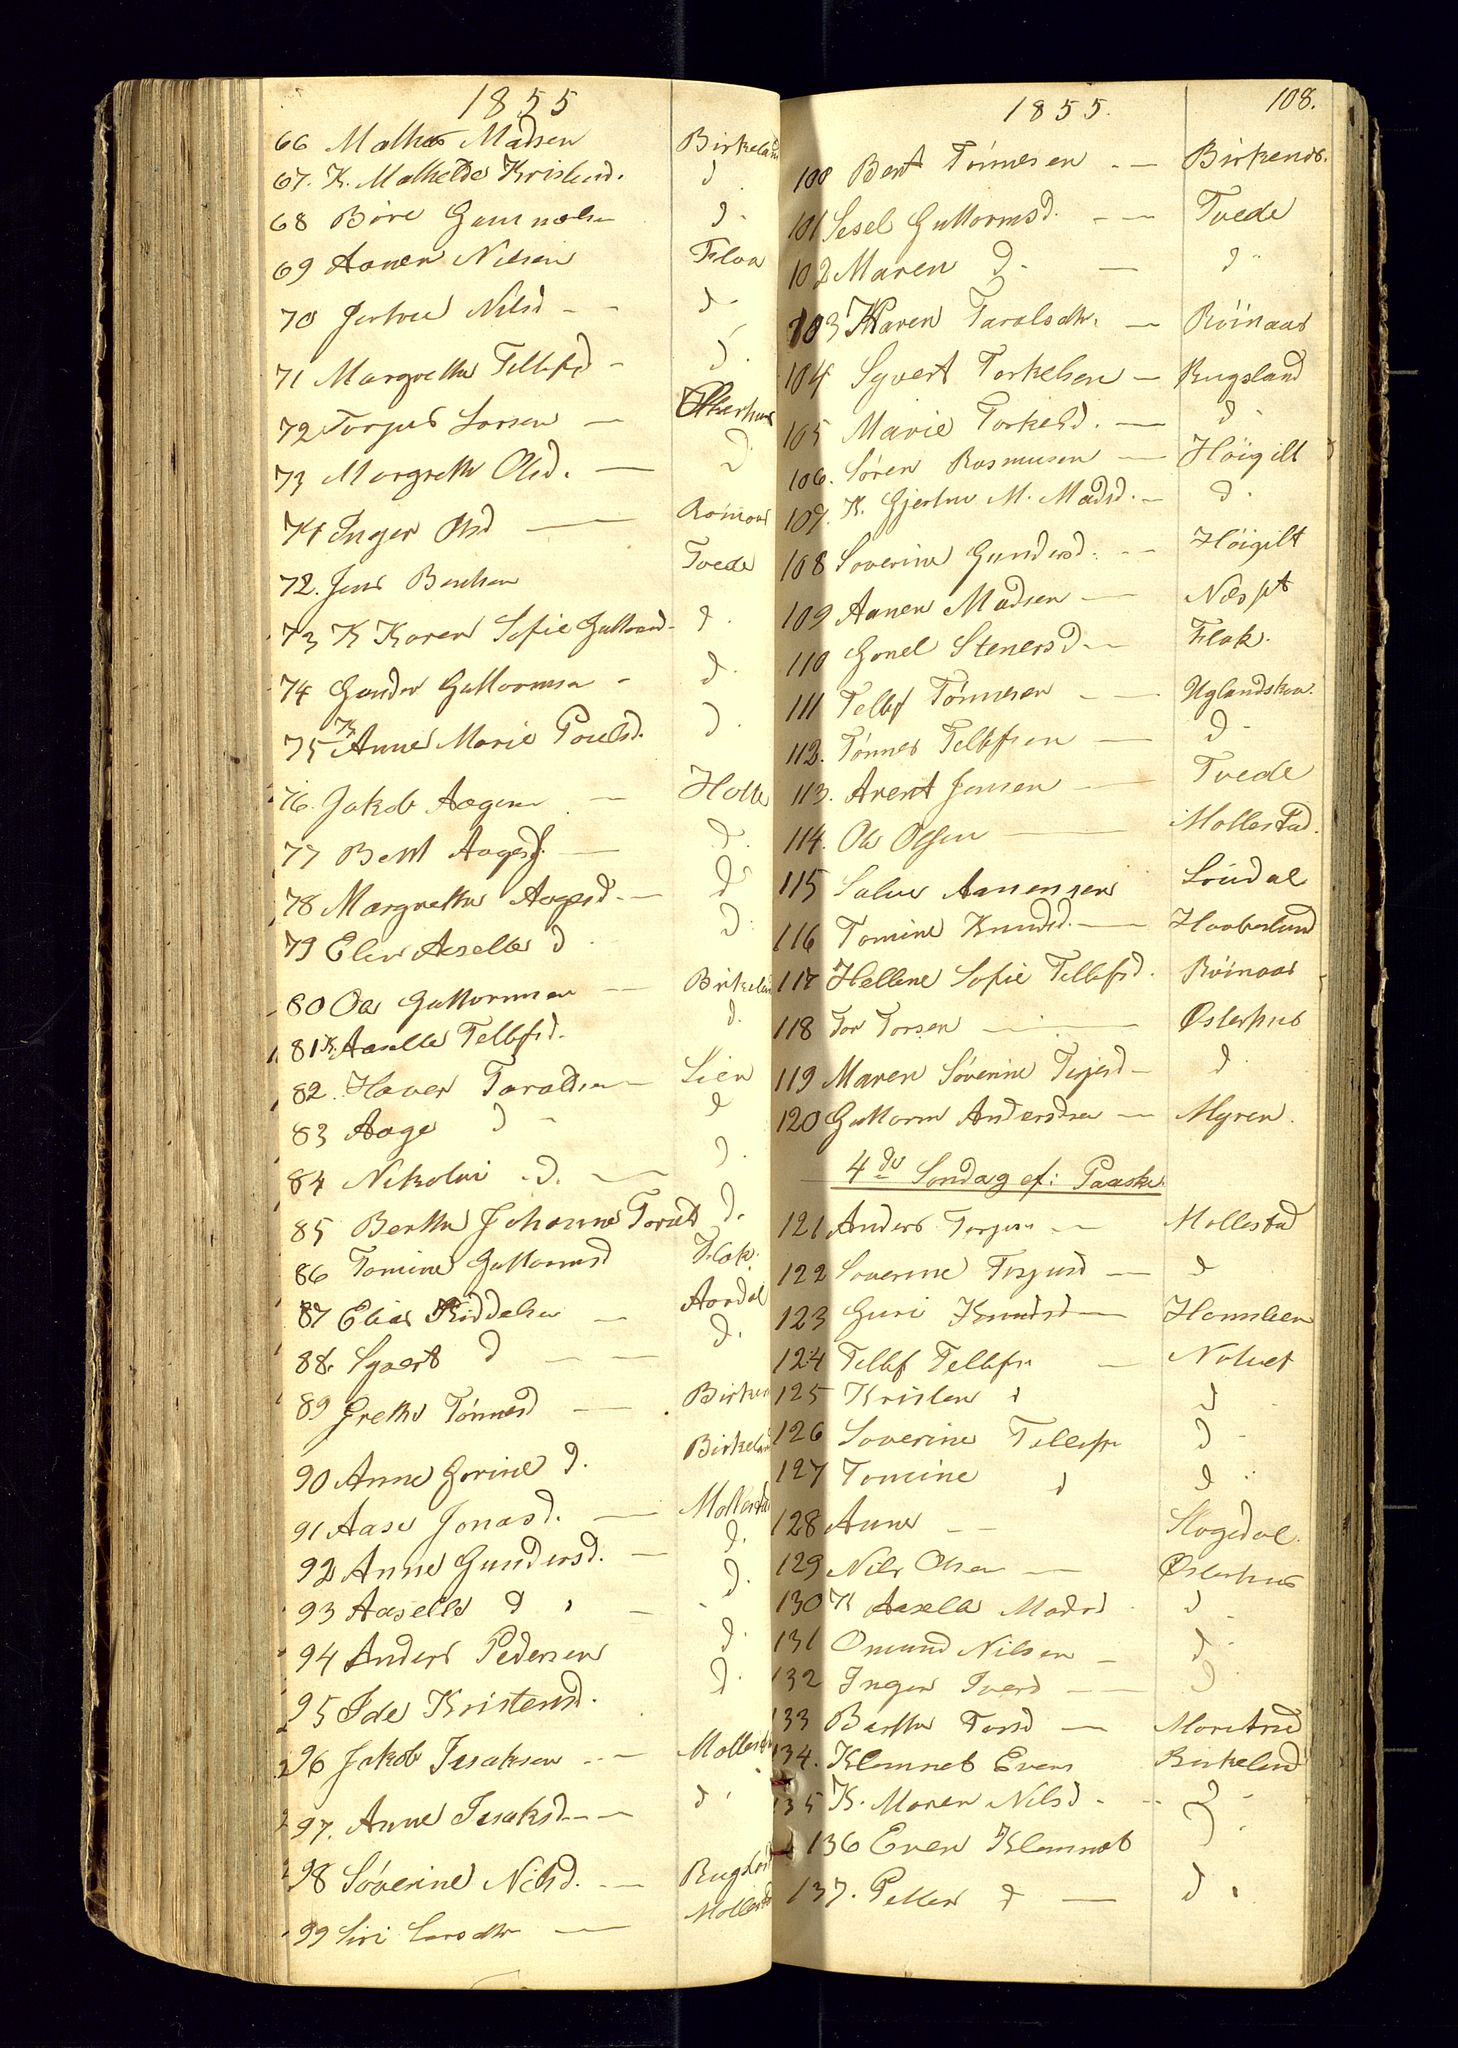 1855
66 Mathias Madsen Birkeland
67. K. Mathilde Kristensd. d
68 Børe Gunnuelsen d.
69 Aanen Nilsen Flaa
70 Jertrue Nilsd - - d
71 Margrethe Tellefsd - d.
72 Torjus Larsen - Østerhus
73 Margrethe Olsd. - d
74 Inger Olsd - Röinaas
72. Jens Bentsen Tvede
73 K Karen Sofie Guttormsd - d.
74 Gunder Guttormsen - d.
75 K Anne Marie Poulsd. d.
76. Jakob Aagesen - Holte
77 Berit Aagesd. - d.
78 Margrethe Aagesd. - d
79 Elen Aaselle d. d.
80 Ole Guttormsen - Birkeland
81 K. Aaselle Tellefsd. d.
82. Haver Taraldsen - Lien
83 Aage d - d
84 Nikolai d. - d.
85 Berthe Johanne Taralds d.
86 Tomine Guttormsd Flak.
87 Elias Kiddelsen - Aardal
88. Syvert d - - d.
89 Grethe Tönnesd - Birken
90 Anne Gorine d. Birkeland
91 Aase Jonasd. - Mollestad
92 Anne Gundersd. - d.
93 Aaselle d - d.
94 Anders Pedersen d.
95 Ide Kristensd. d.
96 Jakob Isaksen - Mollestad
97. Anne Isaksd - d.
98 Søverine Nilsd. - Rugsland
99 Siri Larsdtr - Mollestad
1855. 108.
100 Bent Tönnesen - Birkenes.
101 Sesel Guttormsd. - - Tvede
102 Maren d. - d
103 Karen Taralsdtr. - Röinaas
104 Syvert Torkelsen - Rugsland
105 Marie Torkelsd. - d
106. Søren Rasmusen - Höigilt
107. K. Gjertrue M. Madsd. - d.
108 Soverine Gundersd. - - Höigilt
109 Aanen Madsen - Næs pt
110 Gonel Stenersd - - Flak.
111 Tellef Tönnesen - Uglandskva.
112. Tönnes Tellefsen - d -
113. Arent Jensen - Tvede
114. Ole Olsen - Mollestad.
115 Salve Aanensen Söudal
116 Tomine Knudsd. - Haaberland
117 Hellene Sofie Tellefsd. Röinaas
118 Tor Torsen - Østerhus
119 Maren Söverine Terjesd - d
120 Guttorm Andersdsen - Myren
4de Söndag ef: Paaske
121 Anders Torjusen - - Mollestad
122 Soverine Torjusd - d
123 Guri Knudsd - Hamsleen
124 Tellef Tellefsen - Natvet
125 Kristen d d
126 Soverine Tellefsn d -
127 Tomine d d
128 Anne - Skogedal
129 Nils Olsen - Østerhus
130 K Aaselle Madsd d
131 Omund Nilsen - d -
132 Inger Iversd - - d.
133 Berthe Torsd - Moretrød
134. Klemmet Evens Birkeland
135 K. Maren Nilsd - d -
136 Even Klemmets d.
137. Petter d - d.